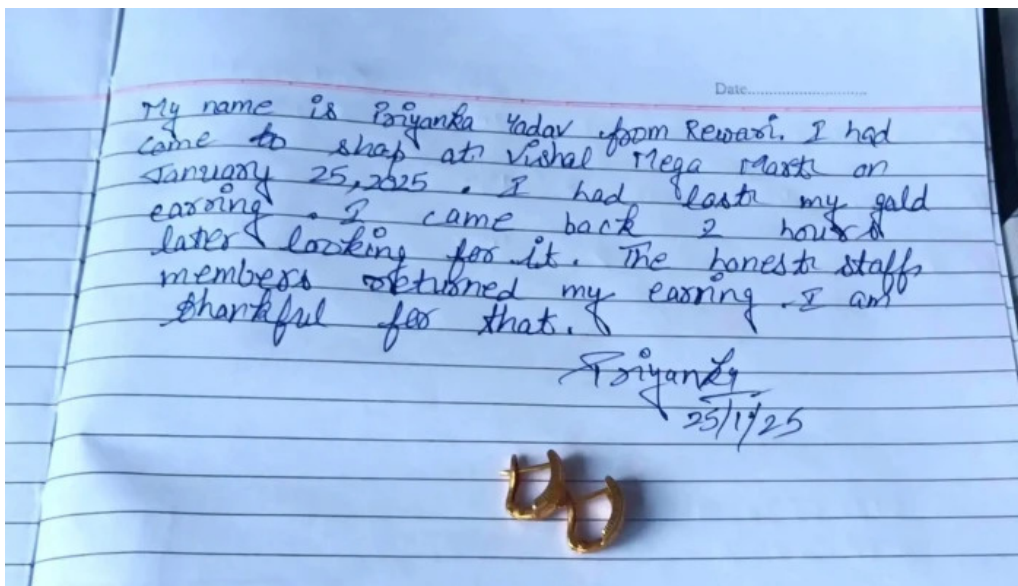 Date..............................
My name is Priyanka Yadav from Rewari. I had
come to shop at Vishal Mega Mart on
January 25, 2025. I had lost my gold
earring. I came back 2 hours
later looking for it. The honest staff
members returned my earring. I am
thankful for that.
Priyanka
25/1/25